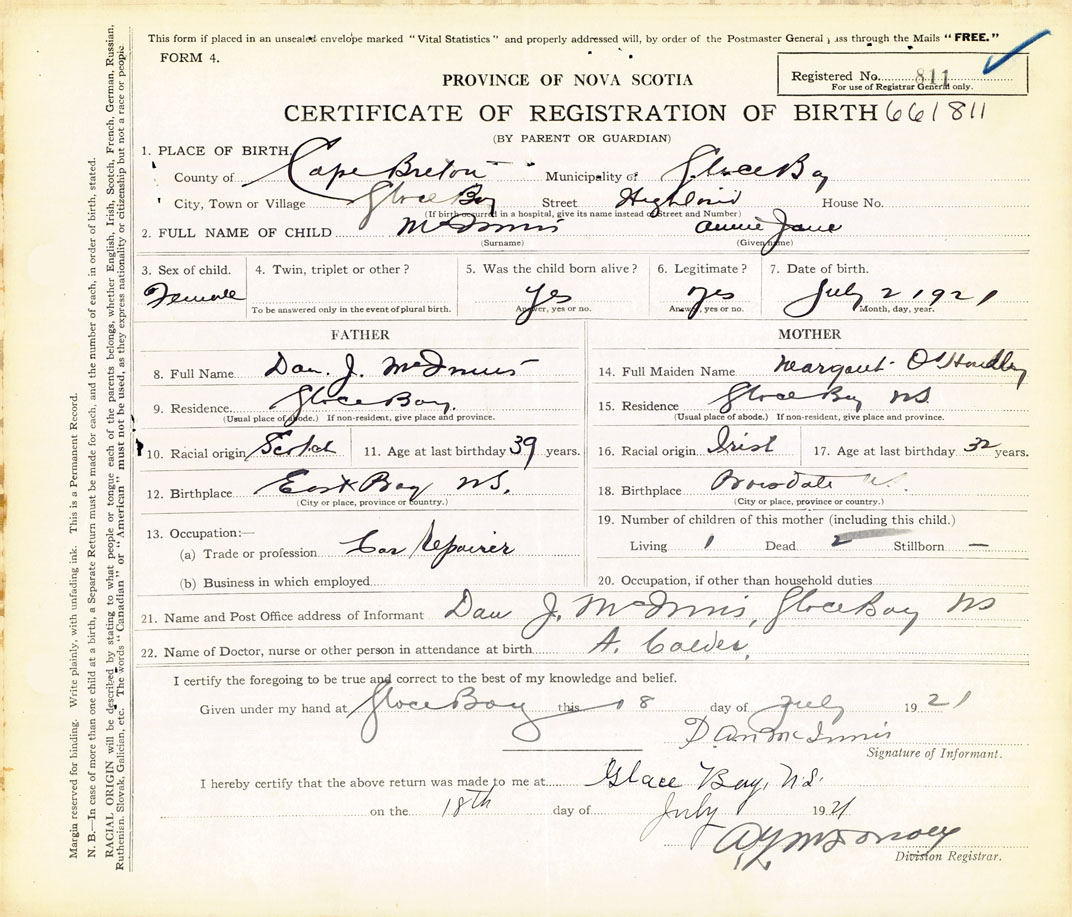 This form if placed in an unsealed envelope marked "Vital Statistics" and properly addressed will, by order of the Postmaster General pass through the Mails "FREE."
FORM 4.
Registered No. 811
For use of Registrar General only.
PROVINCE OF NOVA SCOTIA
CERTIFICATE OF REGISTRATION OF BIRTH 661811
(BY PARENT OR GUARDIAN)
1. PLACE OF BIRTH.
County of Cape Breton Municipality of Glace Bay
City, Town or Village Glace Bay Street Highland House No.
(If birth occurred in a hospital, give its name instead of Street and Number)
2. FULL NAME OF CHILD McInnis Annie Jane
(Surname) (Given name)
3. Sex of child. 4. Twin, triplet or other? 5. Was the child born alive? 6. Legitimate? 7. Date of birth.
Female yes yes July 2 1921
To be answered only in the event of plural birth. Answer, yes or no. Answer, yes or no. Month, day, year.
FATHER
8. Full Name Dan. J. McInnis
9. Residence Glace Bay.
(Usual place of abode.) If non-resident, give place and province.
10. Racial origin Scotch 11. Age at last birthday 39 years.
12. Birthplace East Bay NS.
(City or place, province or country.)
13. Occupation:—
(a) Trade or profession Car Repairer
(b) Business in which employed
MOTHER
14. Full Maiden Name Margaret O'Handley
15. Residence Glace Bay NS
(Usual place of abode.) If non-resident, give place and province.
16. Racial origin Irish 17. Age at last birthday 32 years.
18. Birthplace
(City or place, province or country.)
19. Number of children of this mother (including this child.)
Living 1 Dead 2 Stillborn —
20. Occupation, if other than household duties
21. Name and Post Office address of Informant Dan J. McInnis, Glace Bay NS
22. Name of Doctor, nurse or other person in attendance at birth A. Calder
I certify the foregoing to be true and correct to the best of my knowledge and belief.
Given under my hand at Glace Bay this 18 day of July 1921
Dan McInnis
Signature of Informant.
I hereby certify that the above return was made to me at Glace Bay, NS.
on the 18th day of July 1921
Division Registrar.
Margin reserved for binding. Write plainly, with unfading ink. This is a Permanent Record.
N. B.—In case of more than one child at a birth, a Separate Return must be made for each, and the number of each, in order of birth, stated.
RACIAL ORIGIN will be described by stating to what people or tongue each of the parents belongs, whether English, Irish, Scotch, French, German, Russian,
Ruthenian, Slovak, Galician, etc. The words "Canadian" or "American" must not be used, as they express nationality or citizenship but not a race or people.